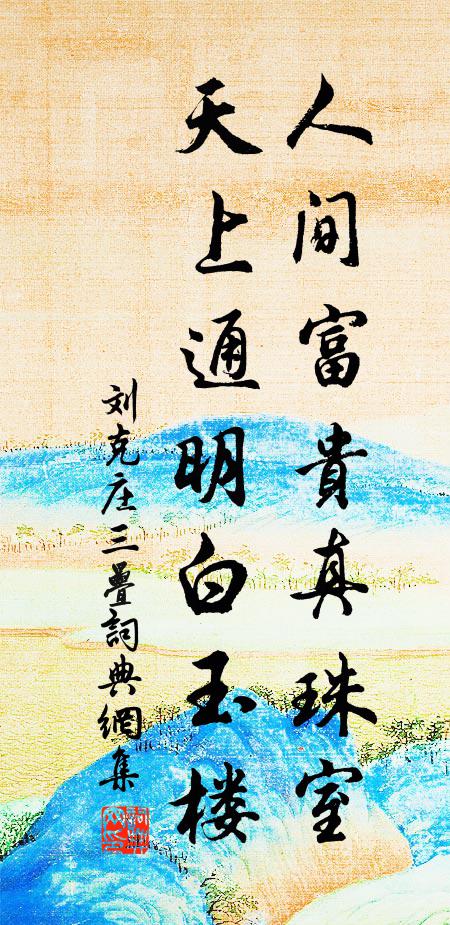 人间富貴真珠室
天上通明白玉楼
刘克庄三疊詞典網集